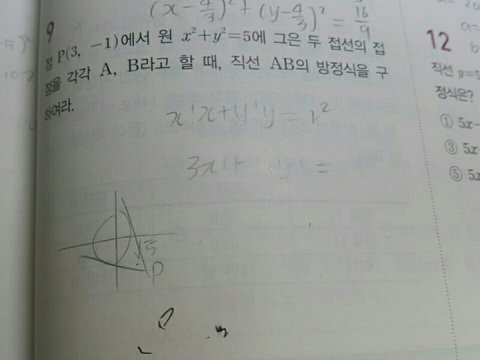 (x-4/3)²+(y-4/3)²=16/9
9
점 P(3, -1)에서 원 x²+y²=5에 그은 두 접선의 접
점을 각각 A, B라고 할 때, 직선 AB의 방정식을 구
하여라.
x'x+y'y=r²
P
12
직선 y=5
정식은?
① 5x-
③ 5x
⑤ 5x